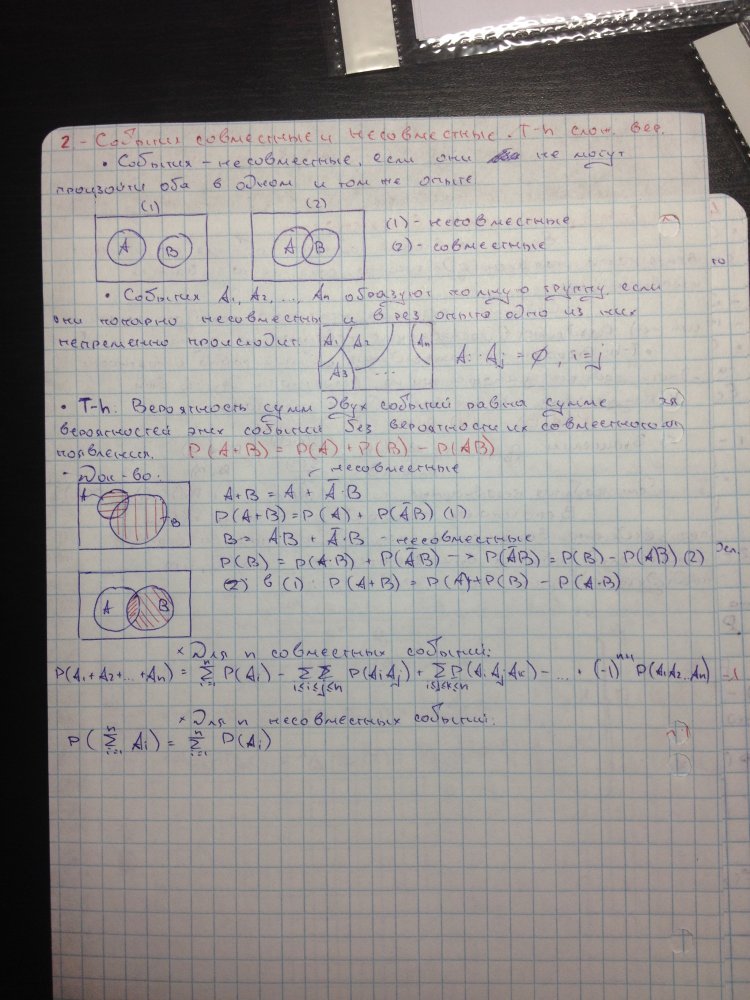 2 - События совместные и несовместные. T-h слож. вер.
• События - несовместные, если они не могут
произойти оба в одном и том же опыте
(1) (2)
A B A B
(1) - несовместные
(2) - совместные
• События A₁, A₂, ..., Aₙ образуют полную группу, если
они попарно несовместны и в рез опыта одно из них
непременно происходит.
A₁ A₂ Aₙ
A₃ ...
Aᵢ · Aⱼ = ∅, i = j
• T-h. Вероятность сумм двух событий равна сумме
вероятностей этих событий без вероятности их совместного
появления. P(A+B) = P(A) + P(B) - P(AB)
• Док-во:
несовместные
A B
A+B = A + Ā·B
P(A+B) = P(A) + P(ĀB) (1)
B = AB + Ā·B - несовместные
P(B) = P(A·B) + P(ĀB) -> P(ĀB) = P(B) - P(AB) (2)
A B
(2) в (1): P(A+B) = P(A) + P(B) - P(A·B)
× Для n совместных событий:
P(A₁+A₂+...+Aₙ) = Σⁿᵢ₌₁ P(Aᵢ) - ΣΣ 1≤i≤j≤n P(AᵢAⱼ) + Σ i≤j≤k≤n P(AᵢAⱼAₖ) - ... · (-1)ⁿ⁺¹ P(A₁A₂...Aₙ)
× Для n несовместных событий:
P(Σⁿᵢ₌₁ Aᵢ) = Σⁿᵢ₌₁ P(Aᵢ)